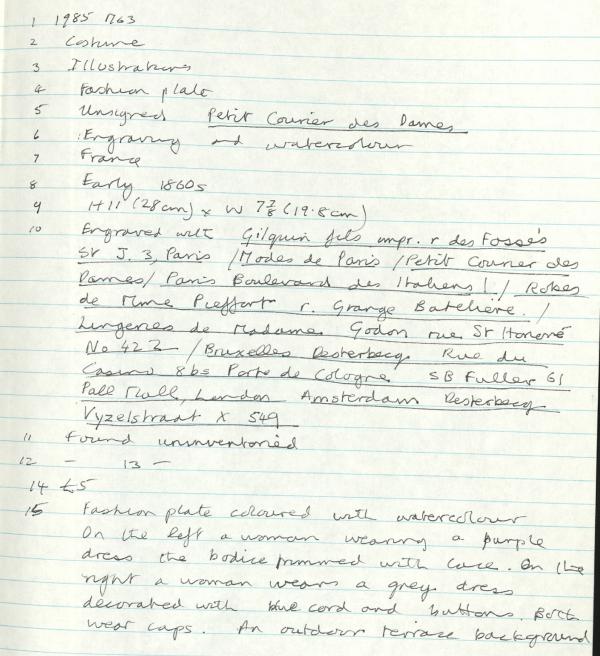 1 1985 1763
2 Costume
3 Illustrations
4 Fashion plate
5 Unsigned Petit Courier des Dames
6 Engraving and watercolour
7 France
8 Early 1860s
9 H 11" (28cm) x W 7 7/8 (19.8cm)
10 Engraved with Gilquin fils impr. r des Fossés
St J. 3, Paris / Modes de Paris / Petit Courier des
Dames / Paris Boulevard des Italiens 1. / Robes
de Mme Pieffort r. Grange Batelière. /
Lingeries de Madames Godon rue St Honoré
No 422 / Bruxelles Desterbecq Rue du
Casino 8bs Porte de Cologne SB Fuller 61
Pall Mall, London Amsterdam Desterbecq
Vyzelstraat X 549
11 Found uninventoried
12 - 13 -
14 £5
15 Fashion plate coloured with watercolour
On the left a woman wearing a purple
dress the bodice trimmed with lace. On the
right a woman wears a grey dress
decorated with blue cord and buttons. Both
wear caps. An outdoor terrace background